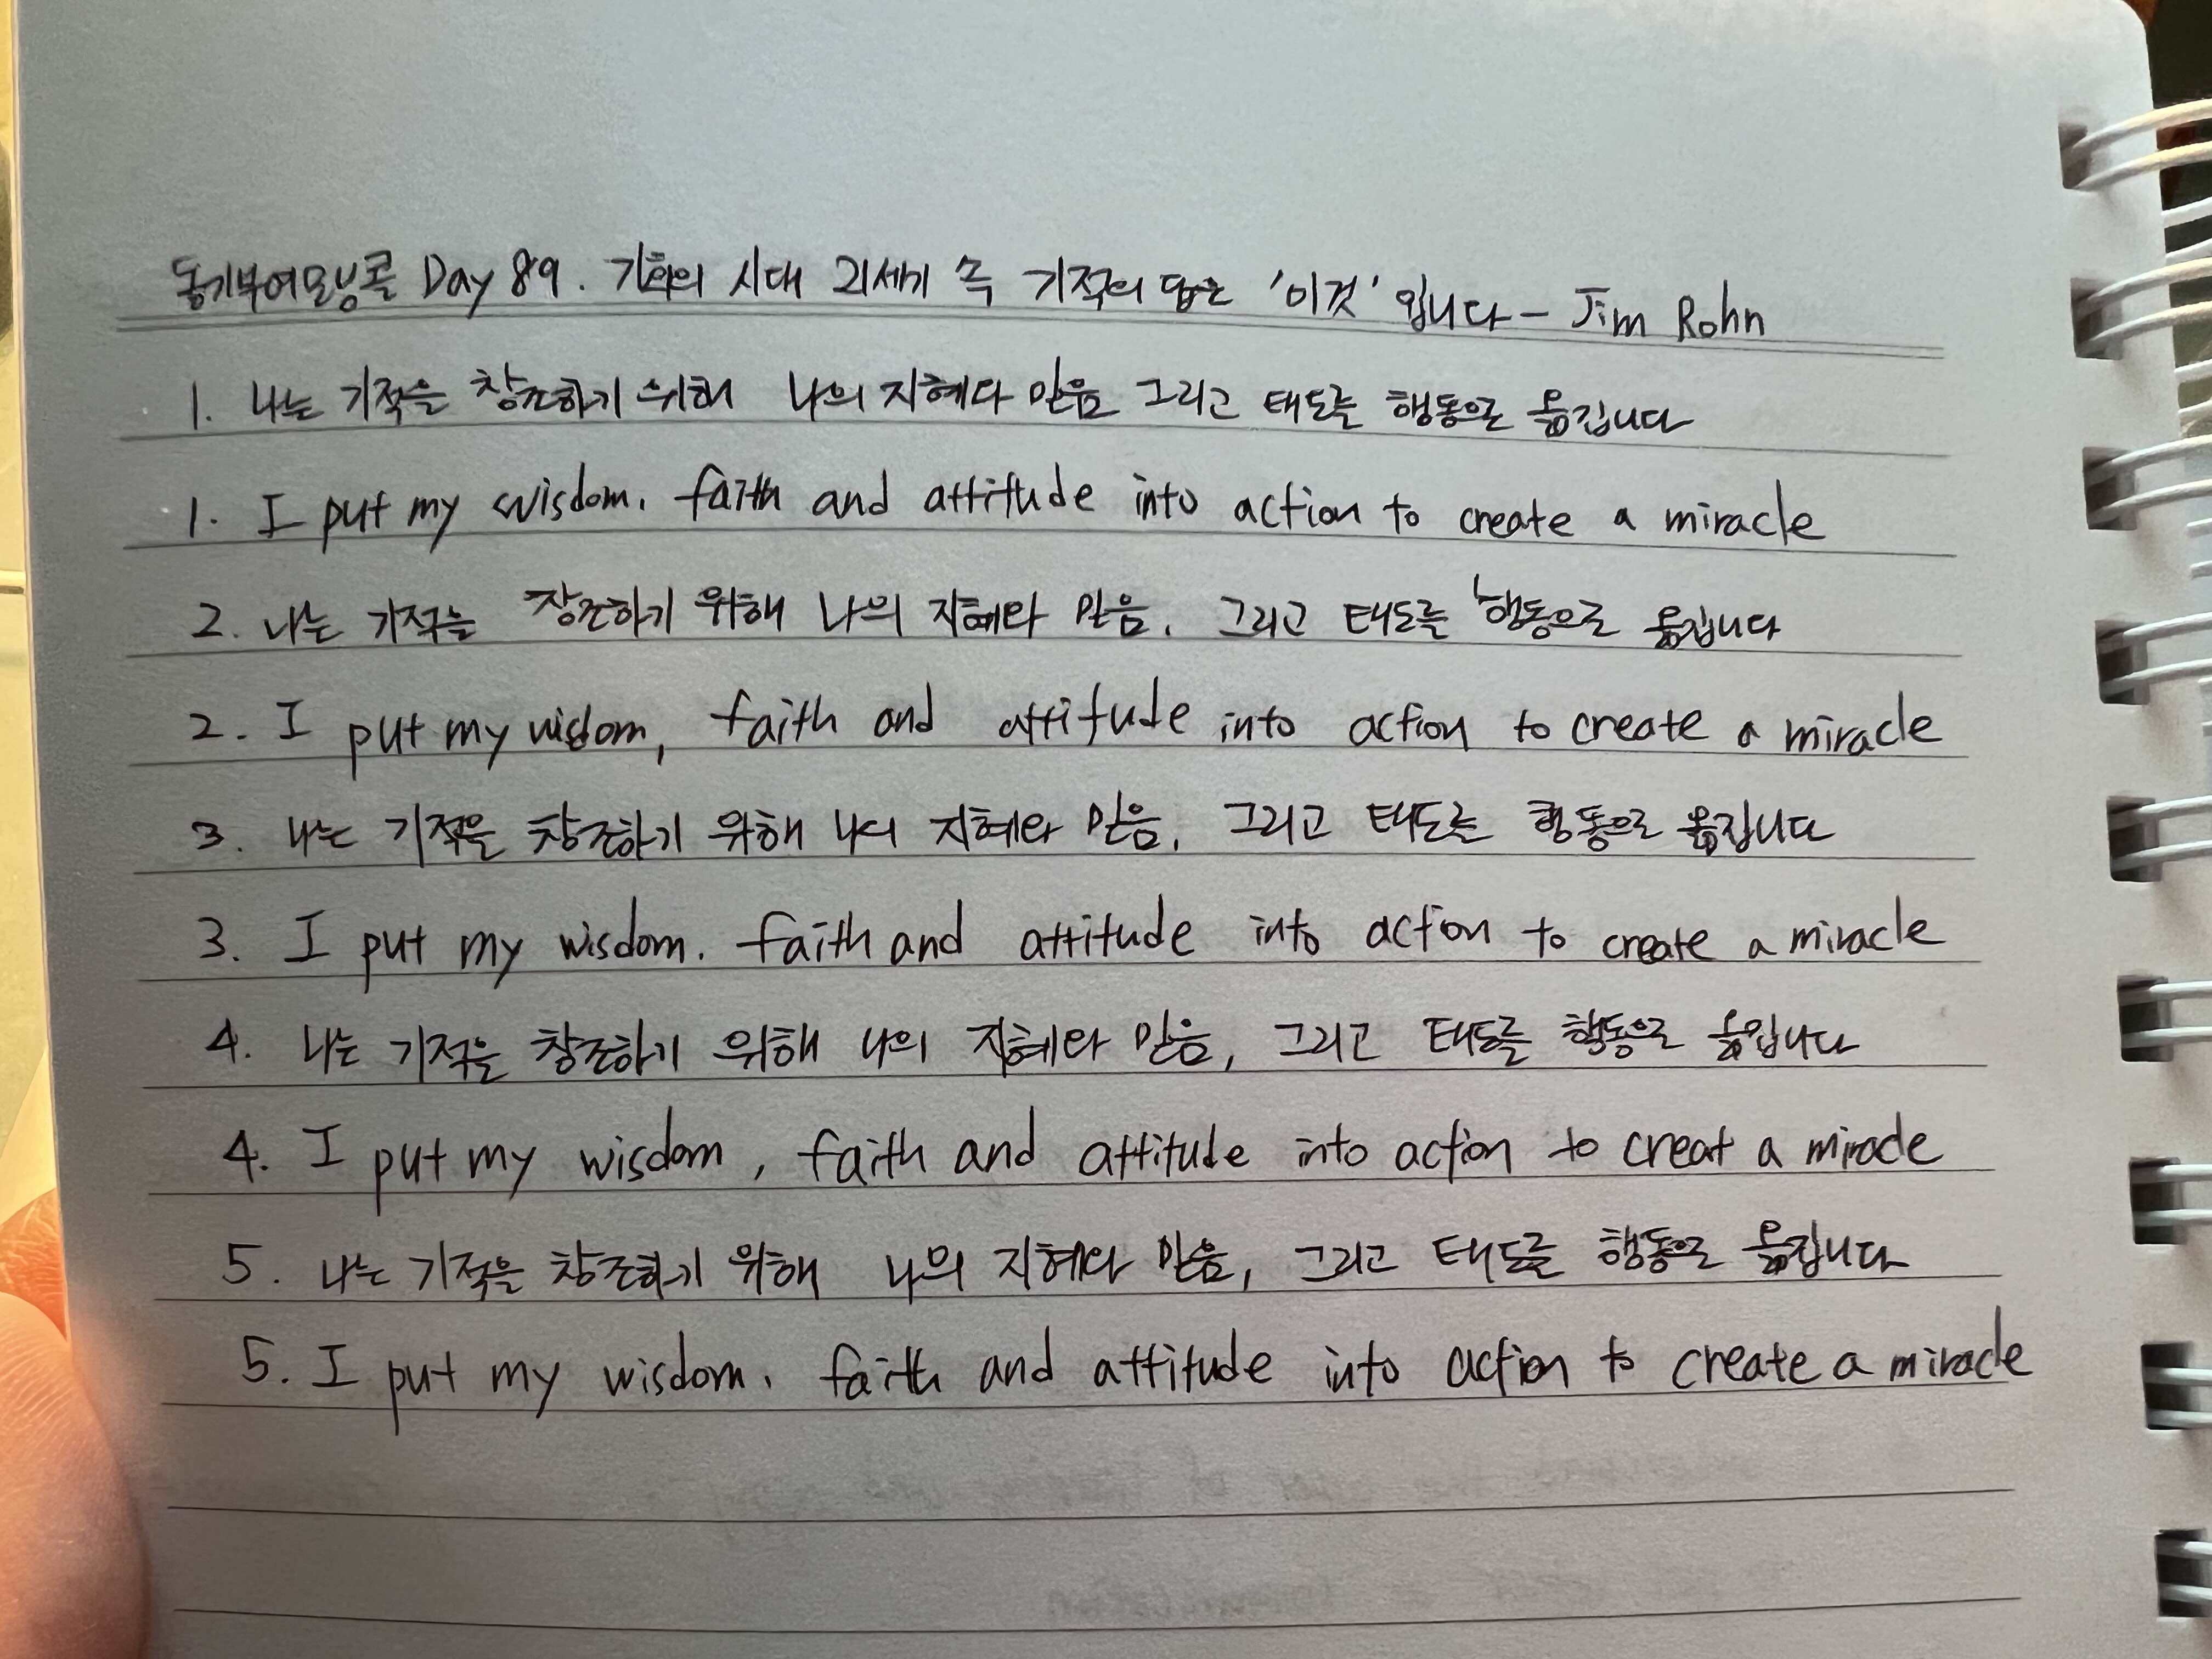 동기부여모닝콜 Day 89. 기회의 시대 21세기 속 기적의 답은 '이것' 입니다 - Jim Rohn
1. 나는 기적을 창조하기 위해 나의 지혜와 믿음 그리고 태도를 행동으로 옮깁니다
1. I put my wisdom. faith and attitude into action to create a miracle
2. 나는 기적을 창조하기 위해 나의 지혜와 믿음, 그리고 태도를 행동으로 옮깁니다
2. I put my wisdom, faith and attitude into action to create a miracle
3. 나는 기적을 창조하기 위해 나의 지혜와 믿음, 그리고 태도를 행동으로 옮깁니다
3. I put my wisdom. faith and attitude into action to create a miracle
4. 나는 기적을 창조하기 위해 나의 지혜와 믿음, 그리고 태도를 행동으로 옮깁니다
4. I put my wisdom, faith and attitude into action to creat a miracle
5. 나는 기적을 창조하기 위해 나의 지혜와 믿음, 그리고 태도를 행동으로 옮깁니다
5. I put my wisdom. faith and attitude into action to create a miracle